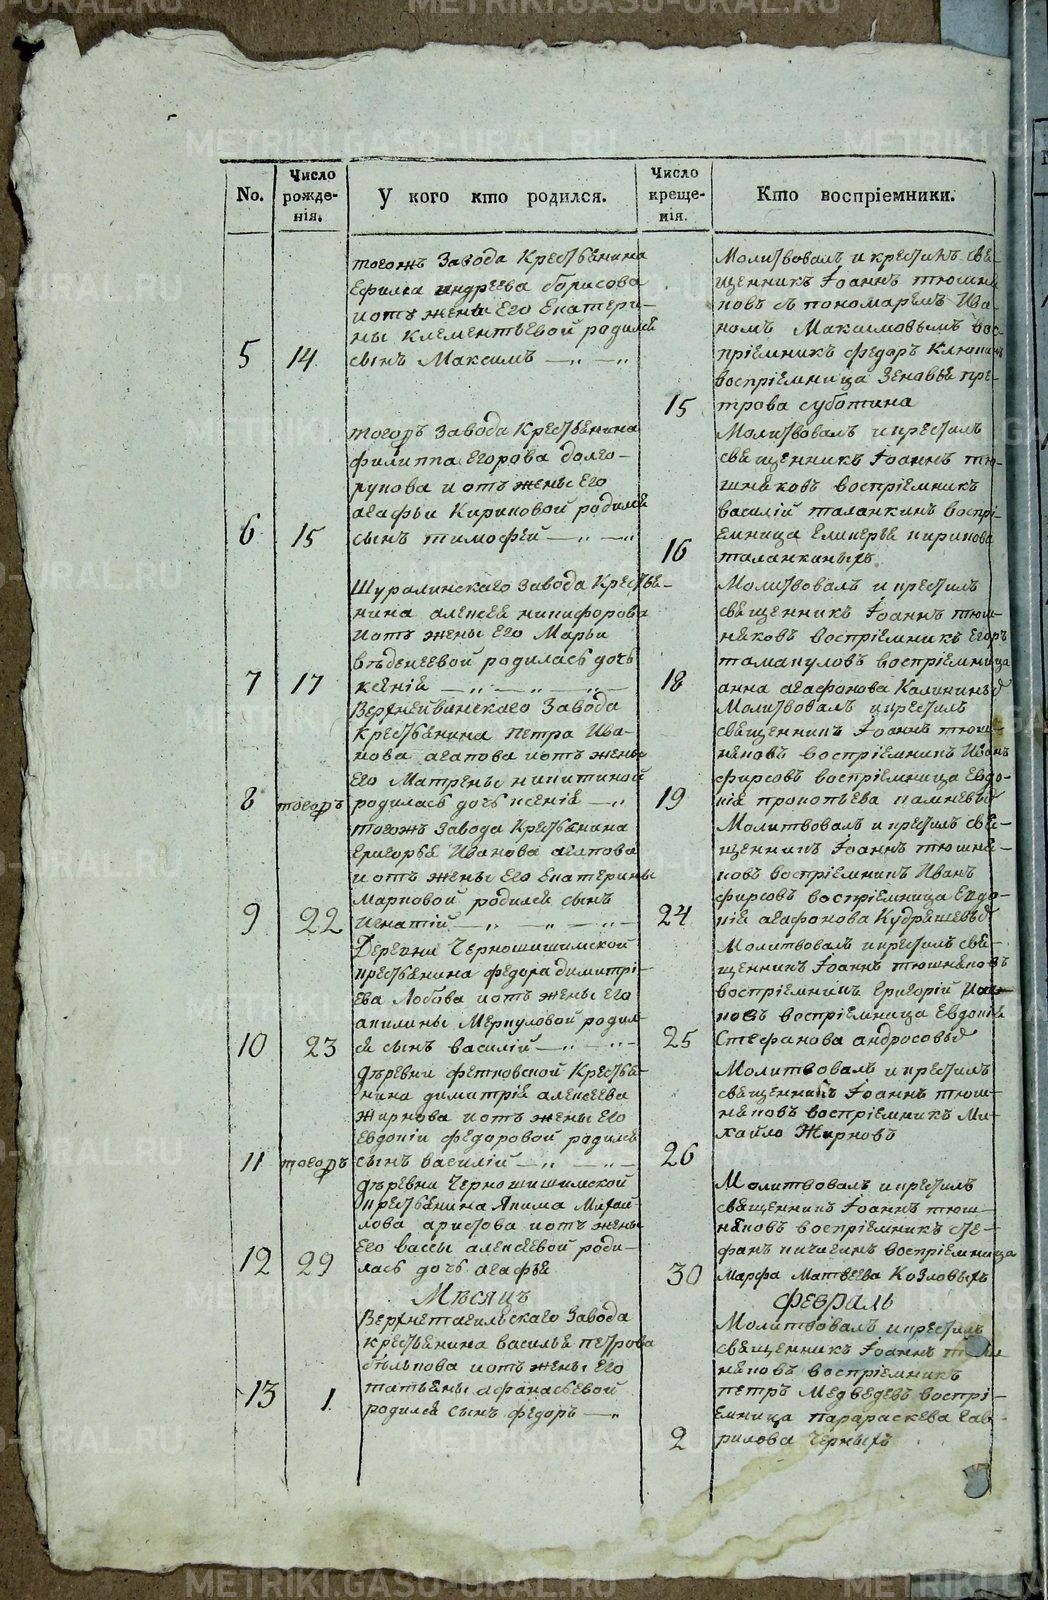 No.
Число рожденія.
У кого кто родился.
Число крещенія.
Кто воспріемники.
5
14
тогожъ Завода Крестьянина
Ефима андреева борисова
и отъ жены Его Екатери-
ны Клементьевой родился
сынъ Максимъ
15
Молитвовалъ и крестилъ свя-
щенникъ Іоаннъ тюшня
ковъ съ пономаремъ Ива
номъ Максимовымъ вос-
пріемникъ федоръ Клюкинъ
воспріемница Зеновья пе-
трова суботина
6
15
тогожъ Завода Крестьянина
филиппа Егорова долго-
рукова и отъ жены Его
агафьи Кириковой родился
сынъ тимофей
16
Молитвовалъ и крестилъ
священникъ Іоаннъ тю-
шняковъ воспріемникъ
василій таланкинъ воспрі-
емница Гликерья кирикова
таланкиныхъ
7
17
Шуралинскаго Завода Крестья-
нина алексея никифорова
и отъ жены Его Марьи
родилась дочь
ксенія
18
Молитвовалъ и крестилъ
священникъ Іоаннъ тюш-
няковъ воспріемникъ Егоръ
томакуловъ воспріемница
анна агафонова Калининыхъ
8
тогожъ
Верхнейвинскаго Завода
крестьянина петра Ива-
нова агапова и отъ жены
Его Матрены никитиной
родилась дочь ксенія
19
Молитвовалъ и крестилъ
священникъ Іоаннъ тюш-
няковъ воспріемникъ Иванъ
фирсовъ воспріемница Евдо-
кія прокопьева
9
22
тогожъ Завода Крестьянина
григорья Иванова агапова
и отъ жены Его Екатерины
Марковой родился сынъ
Игнатій
24
Молитвовалъ и крестилъ свя-
щенникъ Іоаннъ тюшня-
ковъ воспріемникъ Иванъ
фирсовъ воспріемница Евдо-
кія агафонова Кудряшевыхъ
10
23
Деревни Черношишимской
крестьянина федора димитрі-
ева Лобова и отъ жены Его
акилины Меркуловой родил-
ся сынъ василій
25
Молитвовалъ и крестилъ свя-
щенникъ Іоаннъ тюшняковъ
воспріемникъ григорій
ковъ воспріемница Евдокія
Стефанова андросовыхъ
11
тогожъ
деревни фетковской Крестья-
нина димитрія алексеева
Жиркова и отъ жены Его
Евдокіи федоровой родился
сынъ василій
26
Молитвовалъ и крестилъ
священникъ Іоаннъ тюш-
няковъ воспріемникъ Ми-
хайло Жирковъ
12
29
деревни Черношишимской
крестьянина Якима Михай-
лова аристова и отъ жены
Его вассы алексеевой роди-
лась дочь агафья
30
Молитвовалъ и крестилъ
священникъ Іоаннъ тюш-
няковъ воспріемникъ сте-
фанъ кичигинъ воспріемница
Марфа Матвеева Козловыхъ
Мѣсяцъ
февраль
13
1
Верхнетагильскаго Завода
крестьянина василья петрова
бѣлькова и отъ жены Его
татьяны афанасьевой
родился сынъ федоръ
2
Молитвовалъ и крестилъ
священникъ Іоаннъ тюш
няковъ воспріемникъ
петръ Медведевъ воспрі-
емница параскева гав-
рилова Черныхъ
METRIKI.GASO-URAL.RU